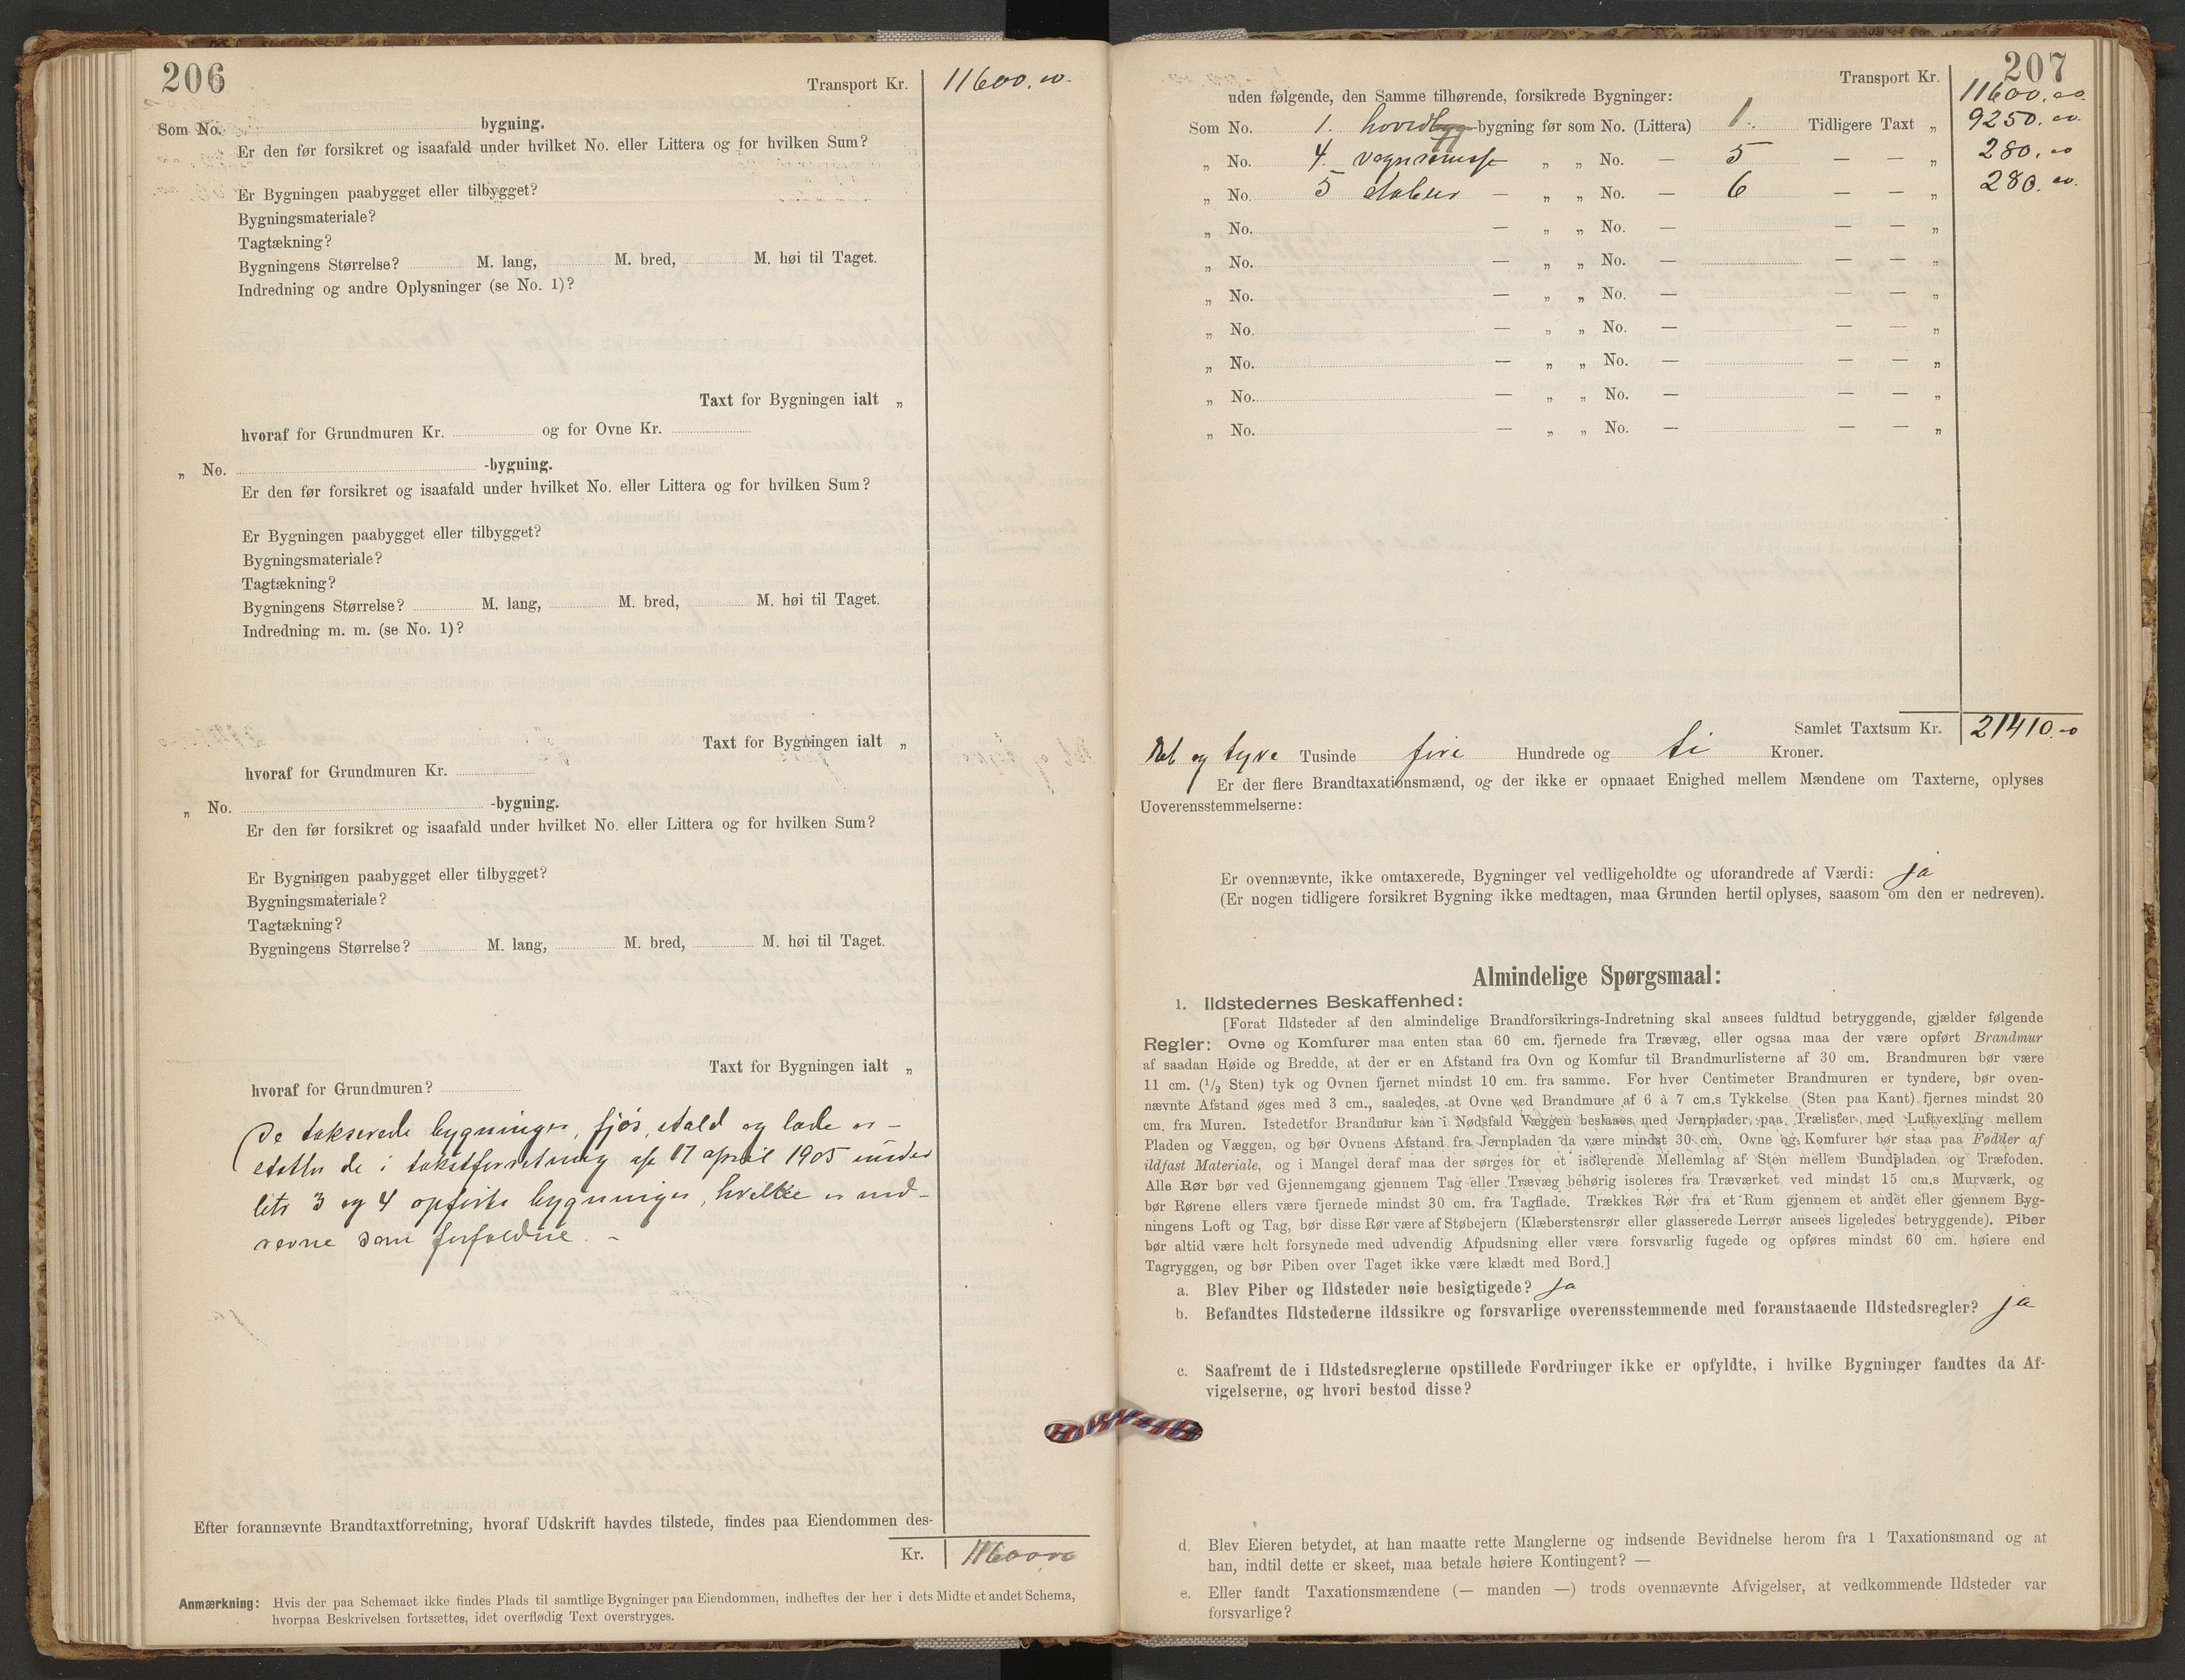 206
Transport Kr. 11600.00.
Som No. bygning.
Er den før forsikret og isaafald under hvilket No. eller Littera og for hvilken Sum?
Er Bygningen paabygget eller tilbygget?
Bygningsmateriale?
Tagtækning?
Bygningens Størrelse? M. lang, M. bred, M. høi til Taget.
Indredning og andre Oplysninger (se No. 1)?
Taxt for Bygningen ialt „
hvoraf for Grundmuren Kr. og for Ovne Kr.
„ No. -bygning.
Er den før forsikret og isaafald under hvilket No. eller Littera og for hvilken Sum?
Er Bygningen paabygget eller tilbygget?
Bygningsmateriale?
Tagtækning?
Bygningens Størrelse? M. lang, M. bred, M. høi til Taget.
Indredning m. m. (se No. 1)?
Taxt for Bygningen ialt „
hvoraf for Grundmuren Kr.
„ No. -bygning.
Er den før forsikret og isaafald under hvilket No. eller Littera og for hvilken Sum?
Er Bygningen paabygget eller tilbygget?
Bygningsmateriale?
Tagtækning?
Bygningens Størrelse? M. lang, M. bred, M. høi til Taget.
Taxt for Bygningen ialt „
hvoraf for Grundmuren?
De takserede bygninger, fjøs, stald og lade er-
statter de i takstforretning af 17 april 1905 under
litr 3 og 4 opførte bygninger, hvilke er ned-
revne som forfaldne. -
Efter forannævnte Brandtaxtforretning, hvoraf Udskrift havdes tilstede, findes paa Eiendommen des-
Kr. 11600.00
Anmærkning: Hvis der paa Schemaet ikke findes Plads til samtlige Bygninger paa Eiendommen, indheftes der her i dets Midte et andet Schema,
hvorpaa Beskrivelsen fortsættes, idet overflødig Text overstryges.
207
Transport Kr. 11600.00.
uden følgende, den Samme tilhørende, forsikrede Bygninger:
Som No. 1. hovedbyg-bygning før som No. (Littera) 1. Tidligere Taxt „ 9250.00.
„ No. 4. vognremisse „ „ No. — 5 — — „ 280.00
„ No. 5 stabur — „ „ No. — 6 — — „ 280.00.
„ No. — „ „ No. — — — „
„ No. — „ „ No. — — — „
„ No. — „ „ No. — — — „
„ No. — „ „ No. — — — „
„ No. — „ „ No. — — — „
„ No. — „ „ No. — — — „
„ No. — „ „ No. — — — „
Samlet Taxtsum Kr. 21410.00
Et og tyve Tusinde fire Hundrede og ti Kroner.
Er der flere Brandtaxationsmænd, og der ikke er opnaaet Enighed mellem Mændene om Taxterne, oplyses
Uoverensstemmelserne:
Er ovennævnte, ikke omtaxerede, Bygninger vel vedligeholdte og uforandrede af Værdi: ja
(Er nogen tidligere forsikret Bygning ikke medtagen, maa Grunden hertil oplyses, saasom om den er nedreven).
Almindelige Spørgsmaal:
1. Ildstedernes Beskaffenhed:
[Forat Ildsteder af den almindelige Brandforsikrings-Indretning skal ansees fuldtud betryggende, gjælder følgende
Regler: Ovne og Komfurer maa enten staa 60 cm. fjernede fra Trævæg, eller ogsaa maa der være opført Brandmur
af saadan Høide og Bredde, at der er en Afstand fra Ovn og Komfur til Brandmurlisterne af 30 cm. Brandmuren bør være
11 cm. (1/2 Sten) tyk og Ovnen fjernet mindst 10 cm. fra samme. For hver Centimeter Brandmuren er tyndere, bør oven-
nævnte Afstand øges med 3 cm., saaledes, at Ovne ved Brandmure af 6 à 7 cm.s Tykkelse (Sten paa Kant) fjernes mindst 20
cm. fra Muren. Istedetfor Brandmur kan i Nødsfald Væggen beslaaes med Jernplader paa Trælister med Luftvexling mellem
Pladen og Væggen, og bør Ovnens Afstand fra Jernpladen da være mindst 30 cm. Ovne og Komfurer bør staa paa Fødder af
ildfast Materiale, og i Mangel deraf maa der sørges for et isolerende Mellemlag af Sten mellem Bundpladen og Træfoden.
Alle Rør bør ved Gjennemgang gjennem Tag eller Trævæg behørig isoleres fra Træværket ved mindst 15 cm.s Murværk, og
bør Rørene ellers være fjernede mindst 30 cm. fra Tagflade. Trækkes Rør fra et Rum gjennem et andet eller gjennem Byg-
ningens Loft og Tag, bør disse Rør være af Støbejern (Klæberstensrør eller glasserede Lerrør ansees ligeledes betryggende). Piber
bør altid være helt forsynede med udvendig Afpudsning eller være forsvarlig fugede og opføres mindst 60 cm. høiere end
Tagryggen, og bør Piben over Taget ikke være klædt med Bord.]
a. Blev Piber og Ildsteder nøie besigtigede? ja
b. Befandtes Ildstederne ildssikre og forsvarlige overensstemmende med foranstaaende Ildstedsregler? ja
c. Saafremt de i Ildstedsreglerne opstillede Fordringer ikke er opfyldte, i hvilke Bygninger fandtes da Af-
vigelserne, og hvori bestod disse?
d. Blev Eieren betydet, at han maatte rette Manglerne og indsende Bevidnelse herom fra 1 Taxationsmand og at
han, indtil dette er skeet, maa betale høiere Kontingent? —
e. Eller fandt Taxationsmændene (— manden —) trods ovennævnte Afvigelser, at vedkommende Ildsteder var
forsvarlige?